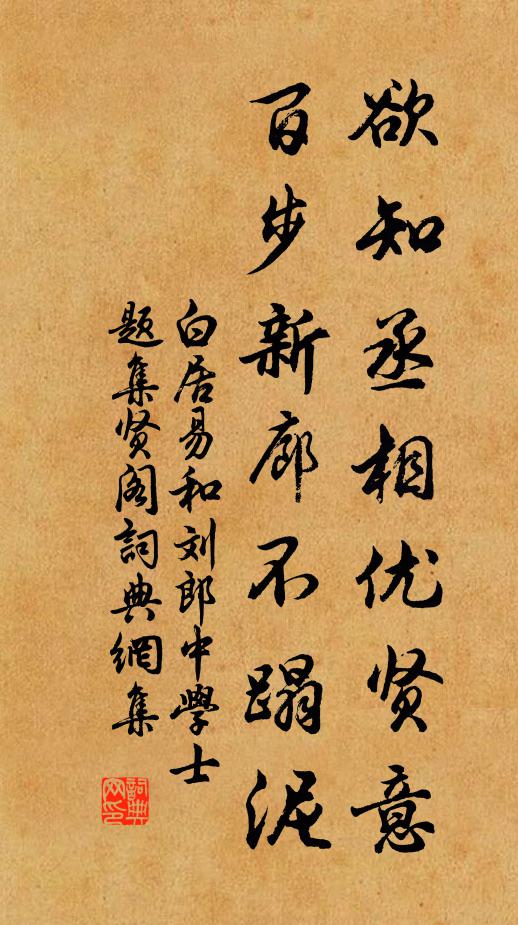 欲知丞相优贤意
百步新廊不蹋泥
白居易和刘郎中學士
题集贤阁詞典網集
詞典
网印